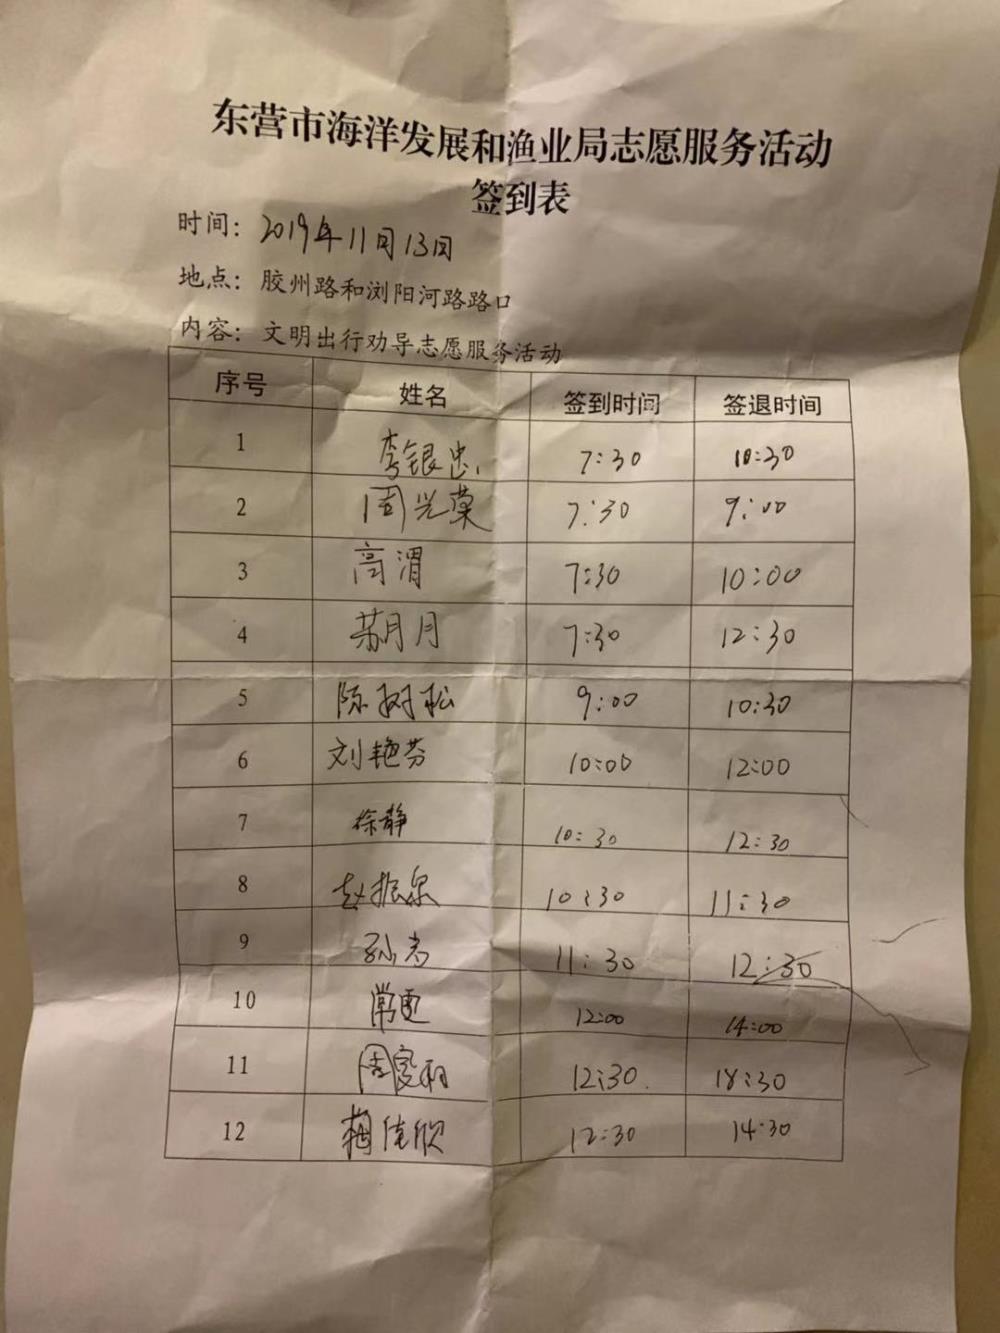 东营市海洋发展和渔业局志愿服务活动
签到表
时间：2019年11月13日
地点：胶州路和浏阳河路路口
内容：文明出行劝导志愿服务活动
序号 姓名 签到时间 签退时间
1 李银忠 7:30 10:30
2 周兴荣 7:30 9:00
3 高渭 7:30 10:00
4 苏月月 7:30 12:30
5 陈树松 9:00 10:30
6 刘艳芬 10:00 12:00
7 徐静 10:30 12:30
8 赵振泉 10:30 11:30
9 11:30 12:30
10 12:00 14:00
11 12:30
12 梅佳欣 12:30 14:30